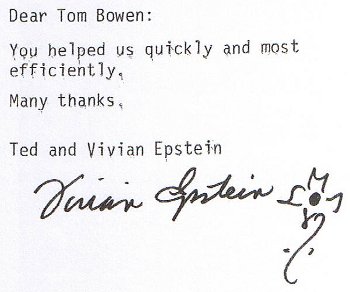 Dear Tom Bowen:
You helped us quickly and most
efficiently.
Many thanks.
Ted and Vivian Epstein
Vivian Epstein